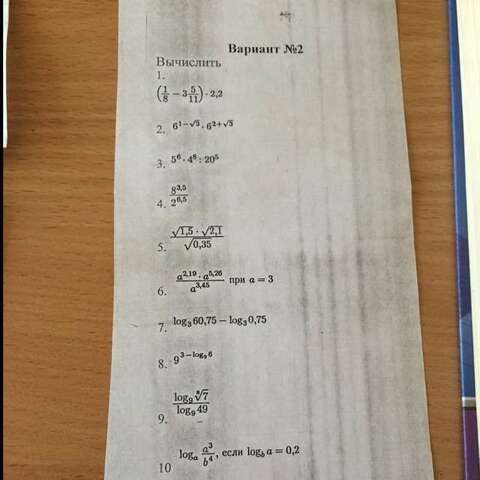 Вариант №2
Вычислить
1.
(1/8 − 3 5/11) · 2,2
2. 6^(1−√3) · 6^(2+√3)
3. 5^6 · 4^8 : 20^5
4. 8^(3,5) / 2^(6,5)
5. (√1,5 · √2,1) / √0,35
6. (a^(2,19) · a^(5,26)) / a^(3,45) при a = 3
7. log₃ 60,75 − log₃ 0,75
8. 9^(3−log₉ 6)
9. log₉ ⁸√7 / log₉ 49
10 logₐ a³/b⁴, если log_b a = 0,2